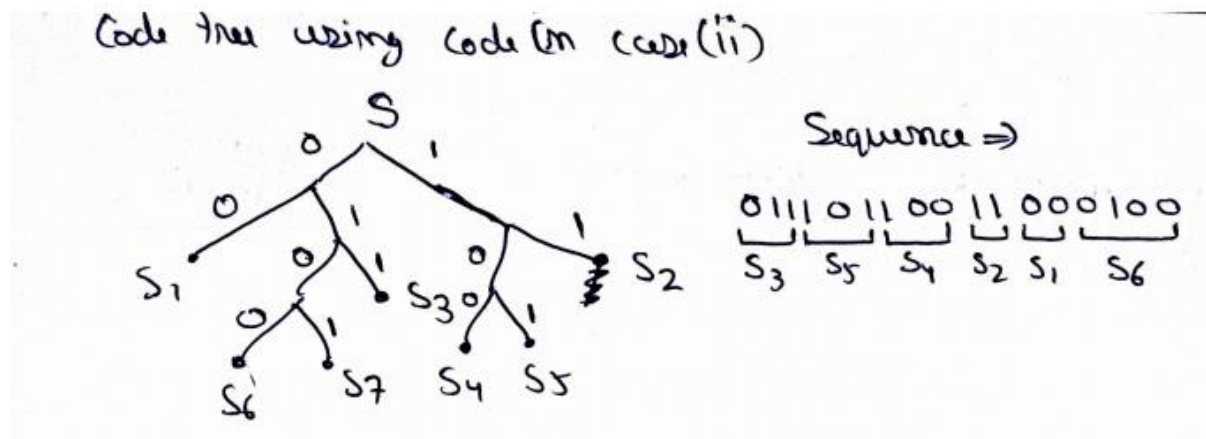 Code tree using code in case(ii)
S
0 1
0 1 1
S1 0 1 S3 0 S2
0 1 0 1
S6 S7 S4 S5
Sequence ⇒
011101100110000100
S3 S5 S4 S2 S1 S6